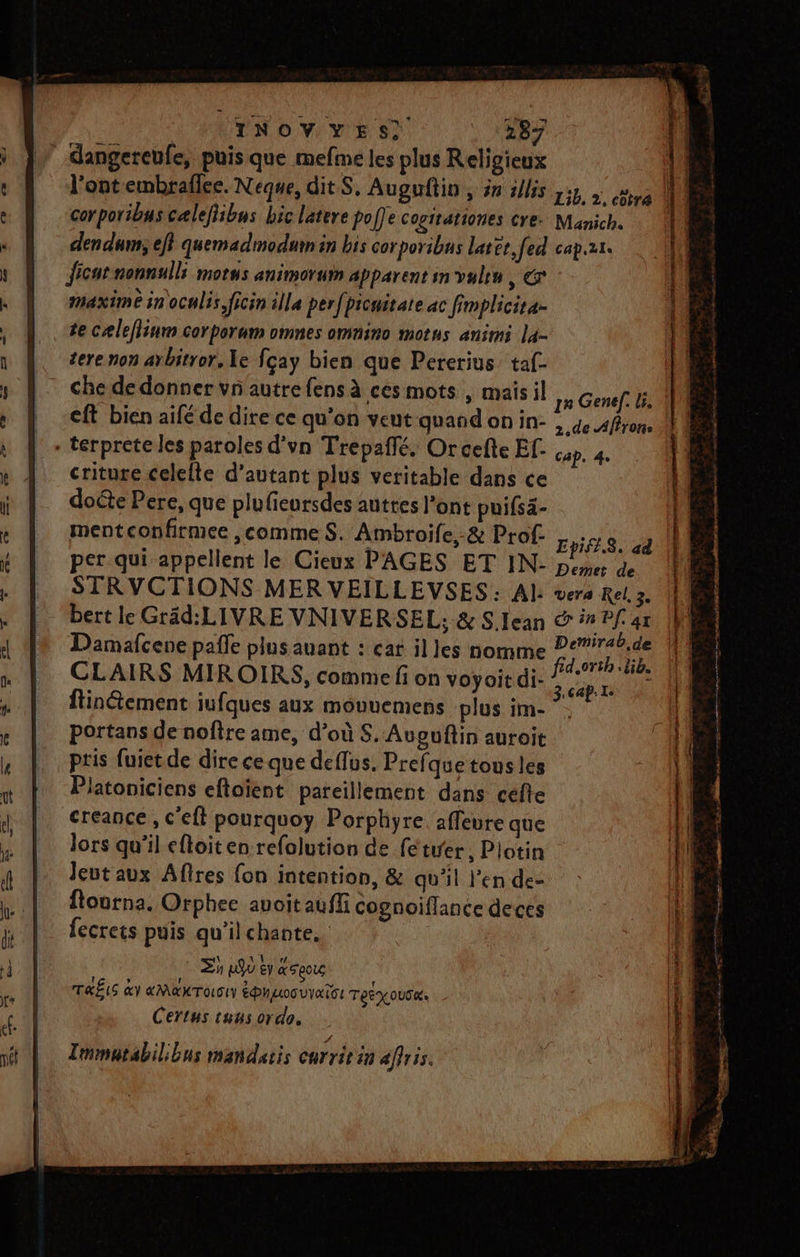 INOVYES.
287
dangereuſe, puis que meſme les plus Religieux
l'ont embraſſee. Neque, dit S. Auguſtin, in illis
corporibus cæleſtibus hic latere poſſe cogitationes cre-
dendum, eſt quemadmodum in his corporibus latēt, ſed
ſicut nonnulli motus animorum apparent in vultu, &
maximè in oculis, ſicin illa perſpicuitate ac ſimplicita-
te cæleſtium corporum omnes omnino motus animi la-
tere non arbitror. Ie ſçay bien que Pererius taſ-
che de donner vn autre ſens à ces mots, mais il
eſt bien aiſé de dire ce qu'on veut quand on in-
terprete les paroles d'vn Trepaſſé. Or ceſte Eſ-
criture celeſte d'autant plus veritable dans ce
docte Pere, que pluſieursdes autres l'ont puiſsā-
ment confirmee, comme S. Ambroiſe, & Proſ-
per qui appellent le Cieux PAGES ET IN-
STRVCTIONS MERVEILLEVSES: Al-
bert le Grād: LIVRE VNIVERSEL; & S. Iean
Damaſcene paſſe plus auant : car il les nomme
CLAIRS MIROIRS, comme ſi on voyoit di-
ſtinctement iuſques aux mouuemens plus im-
portans de noſtre ame, d'où S. Auguſtin auroit
pris ſuiet de dire ce que deſſus. Preſque tous les
Platoniciens eſtoient pareillement dans ceſte
creance, c'eſt pourquoy Porphyre aſſeure que
lors qu'il eſtoit en reſolution de ſe tuer, Plotin
leut aux Aſtres ſon intention, & qu'il l'en de-
ſtourna. Orphee auoit auſſi cognoiſſance de ces
ſecrets puis qu'il chante.
Certus tuus ordo,
Immutabilibus mandatis currit in aſtris.
Lib. 2. cōtra
Manich.
cap. 21.
In Geneſ. li.
2. de Aſtron.
cap. 4.
Epiſt. 8. ad
Demet de
vera Rel. 3.
& in Pſ. 41
Demirab. de
fid. orth. lib.
3. cap. 1.